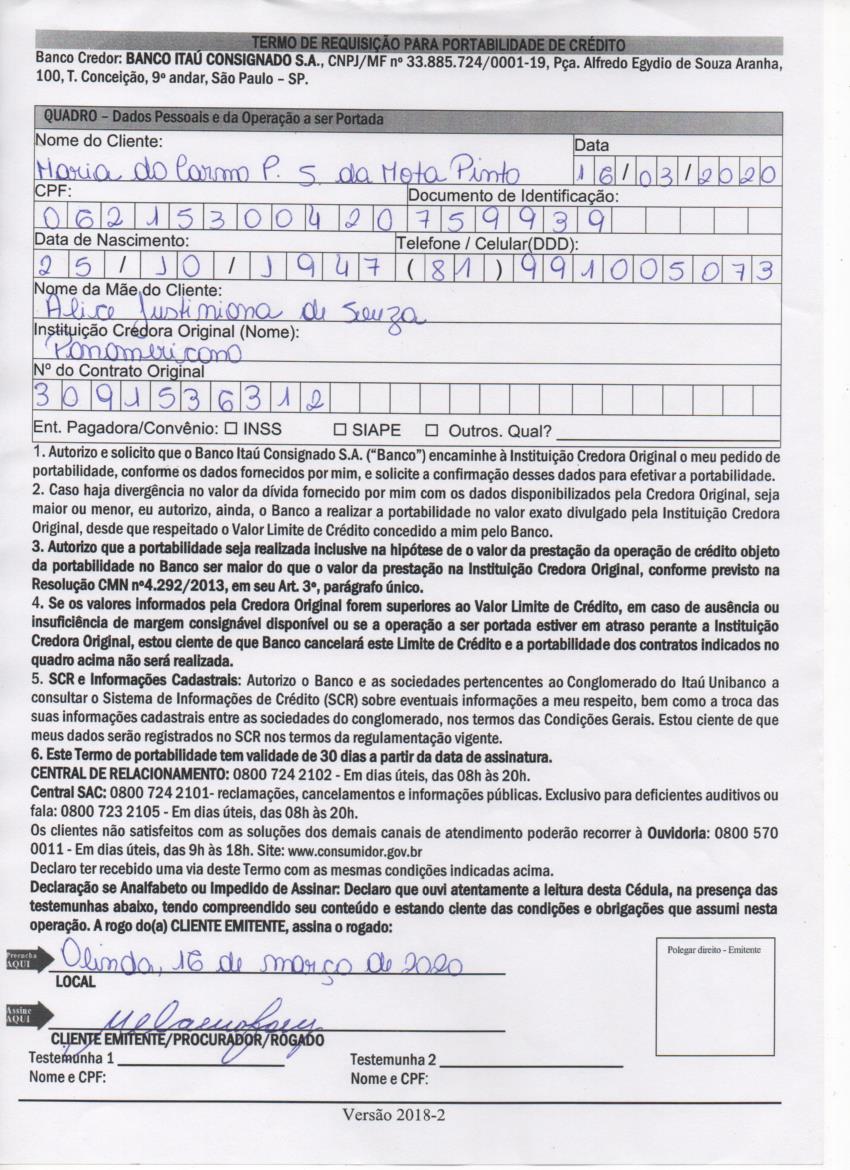 TERMO DE REQUISIÇÃO PARA PORTABILIDADE DE CRÉDITO
Banco Credor: BANCO ITAÚ CONSIGNADO S.A., CNPJ/MF nº 33.885.724/0001-19, Pça. Alfredo Egydio de Souza Aranha,
100, T. Conceição, 9º andar, São Paulo – SP.
QUADRO – Dados Pessoais e da Operação a ser Portada
Nome do Cliente: Data
Maria do Carmo P. S da Mota Pinto 16/03/2020
CPF: Documento de Identificação:
06215300420 759939
Data de Nascimento: Telefone / Celular(DDD):
25/10/1947 (81)991005073
Nome da Mãe do Cliente:
Alice Justiniana de Souza
Instituição Crédora Original (Nome):
Panamericano
Nº do Contrato Original
3091536312
Ent. Pagadora/Convênio: ☐ INSS ☐ SIAPE ☐ Outros. Qual?
1. Autorizo e solicito que o Banco Itaú Consignado S.A. (“Banco”) encaminhe à Instituição Credora Original o meu pedido de
portabilidade, conforme os dados fornecidos por mim, e solicite a confirmação desses dados para efetivar a portabilidade.
2. Caso haja divergência no valor da dívida fornecido por mim com os dados disponibilizados pela Credora Original, seja
maior ou menor, eu autorizo, ainda, o Banco a realizar a portabilidade no valor exato divulgado pela Instituição Credora
Original, desde que respeitado o Valor Limite de Crédito concedido a mim pelo Banco.
3. Autorizo que a portabilidade seja realizada inclusive na hipótese de o valor da prestação da operação de crédito objeto
da portabilidade no Banco ser maior do que o valor da prestação na Instituição Credora Original, conforme previsto na
Resolução CMN nº4.292/2013, em seu Art. 3º, parágrafo único.
4. Se os valores informados pela Credora Original forem superiores ao Valor Limite de Crédito, em caso de ausência ou
insuficiência de margem consignável disponível ou se a operação a ser portada estiver em atraso perante a Instituição
Credora Original, estou ciente de que Banco cancelará este Limite de Crédito e a portabilidade dos contratos indicados no
quadro acima não será realizada.
5. SCR e Informações Cadastrais: Autorizo o Banco e as sociedades pertencentes ao Conglomerado do Itaú Unibanco a
consultar o Sistema de Informações de Crédito (SCR) sobre eventuais informações a meu respeito, bem como a troca das
suas informações cadastrais entre as sociedades do conglomerado, nos termos das Condições Gerais. Estou ciente de que
meus dados serão registrados no SCR nos termos da regulamentação vigente.
6. Este Termo de portabilidade tem validade de 30 dias a partir da data de assinatura.
CENTRAL DE RELACIONAMENTO: 0800 724 2102 - Em dias úteis, das 08h às 20h.
Central SAC: 0800 724 2101- reclamações, cancelamentos e informações públicas. Exclusivo para deficientes auditivos ou
fala: 0800 723 2105 - Em dias úteis, das 08h às 20h.
Os clientes não satisfeitos com as soluções dos demais canais de atendimento poderão recorrer à Ouvidoria: 0800 570
0011 - Em dias úteis, das 9h às 18h. Site: www.consumidor.gov.br
Declaro ter recebido uma via deste Termo com as mesmas condições indicadas acima.
Declaração se Analfabeto ou Impedido de Assinar: Declaro que ouvi atentamente a leitura desta Cédula, na presença das
testemunhas abaixo, tendo compreendido seu conteúdo e estando ciente das condições e obrigações que assumi nesta
operação. A rogo do(a) CLIENTE EMITENTE, assina o rogado:
Preencha AQUI Olinda, 16 de março de 2020 Polegar direito - Emitente
LOCAL
Assine AQUI
CLIENTE EMITENTE/PROCURADOR/ROGADO
Testemunha 1 Testemunha 2
Nome e CPF: Nome e CPF:
Versão 2018-2